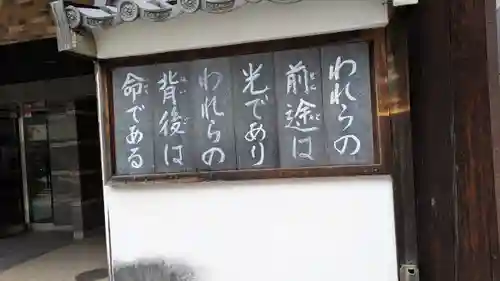 われらの
前途は
光であり
われらの
背後は
命である